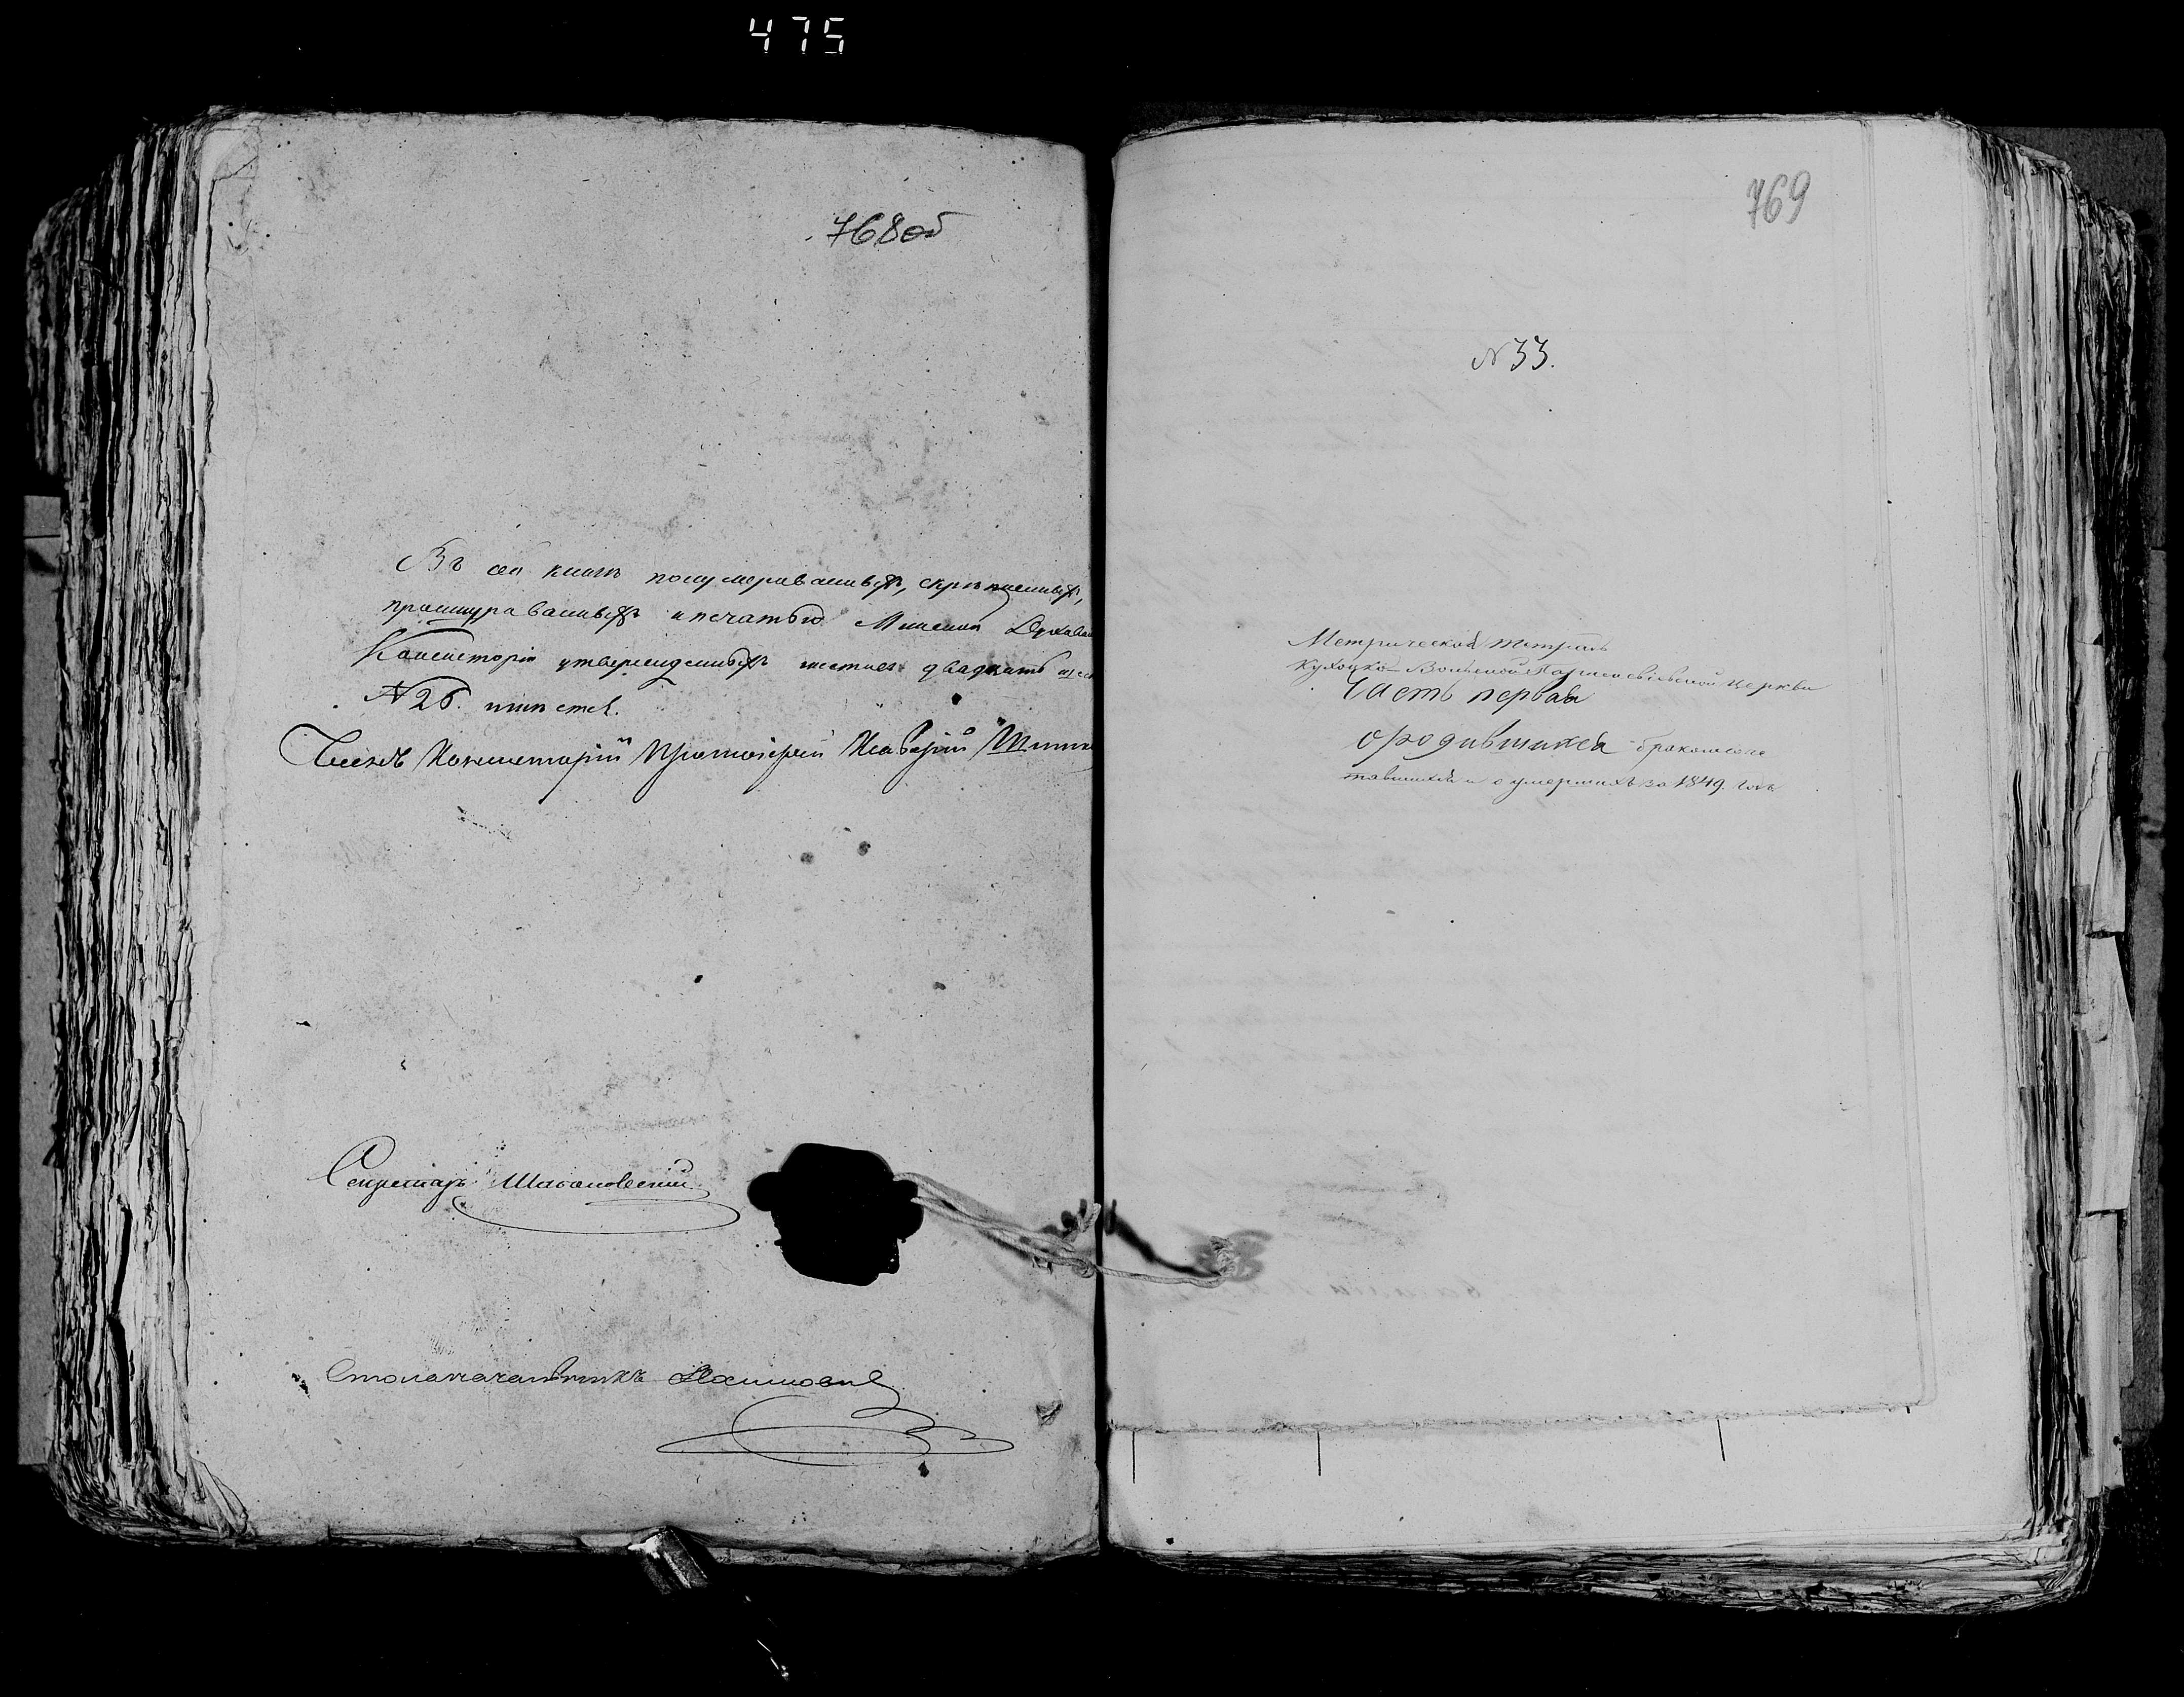 475
768об
Въ сей книгѣ пронумерованныхъ, скрѣпленныхъ,
прошнурованныхъ и печатью Минской Духовной
Консисторіи утвержденныхъ листовъ двадцать
№ 26. шесть.
Членъ Консисторіи Протоіерей
Секретарь
Столоначальникъ
769
№ 33.
Метрической тетради
Кухоцко-Вольской церкви
Часть первая
о родившихся бракосоче
тавшихся и о умершихъ за 1849. годъ